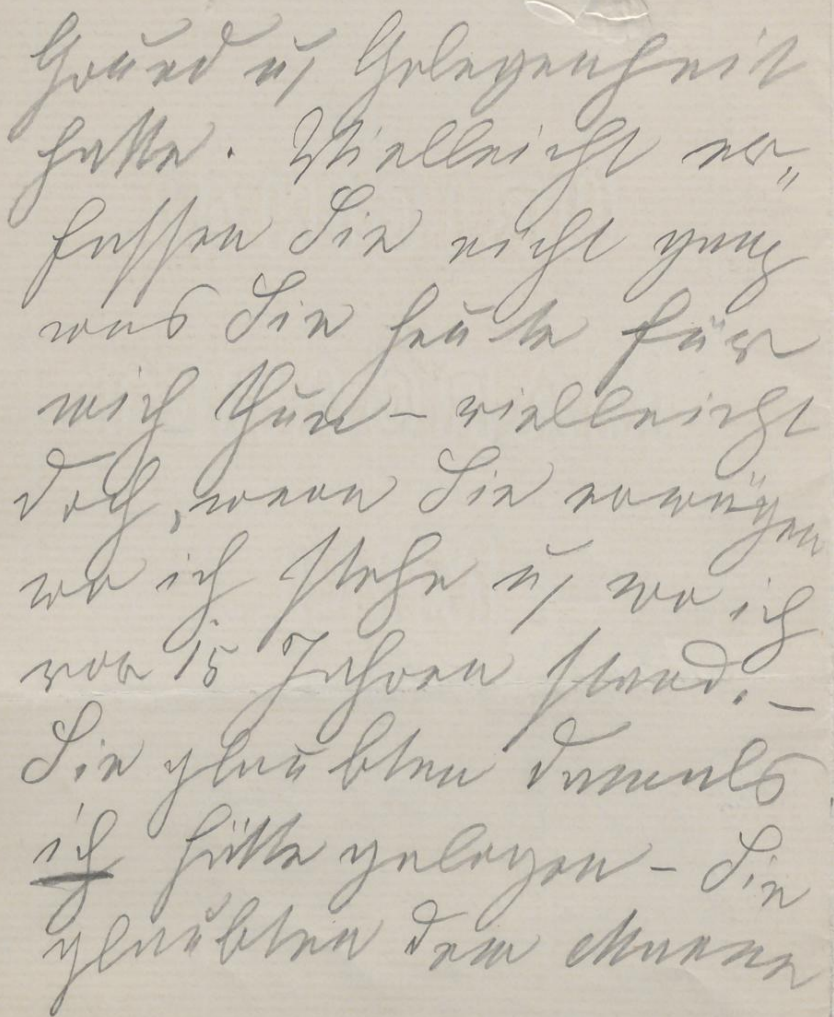 Grund u. Gelegenheit
hatte. Vielleicht er-
fassen Sie nicht ganz
was Sie heute für
mich thun – vielleicht
doch, wenn Sie erwägen
wo ich stehe u. wo ich
vor 15 Jahren stand. –
Sie glaubten damals
ich hätte gelogen – Sie
glaubten dem Manne